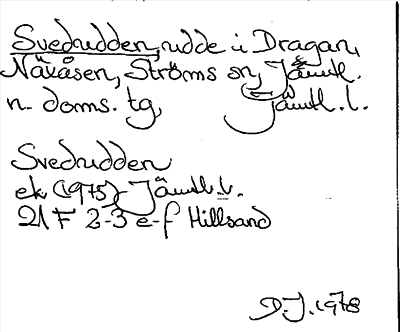 Svedudden, udde i Dragan,
Nävåsen, Ströms sn, Jämtl.
n. doms. tg, Jämtl. l.
Svedudden
ek (1975) Jämtl. l.
21 F 2-3 e-f Hillsand
D.J. 1978